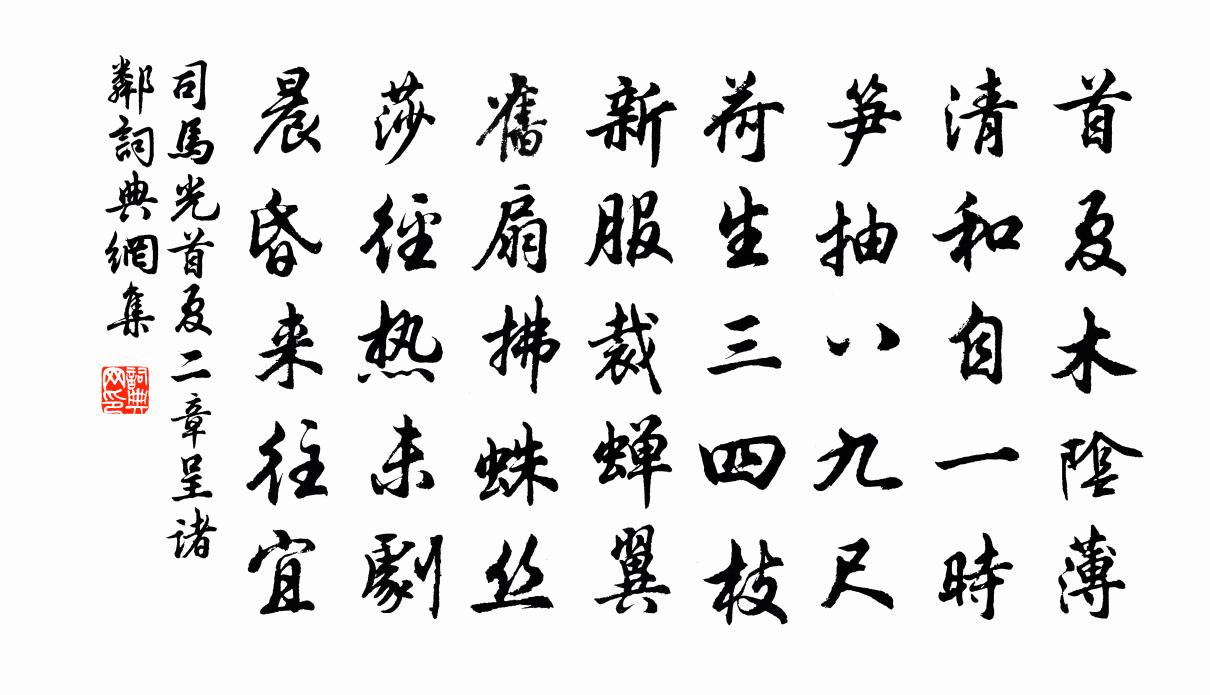 首夏木陰薄
清和自一時
笋抽八九尺
荷生三四枝
新服裁蝉翼
舊扇拂蛛丝
莎徑热未劇
晨昏来往宜
司馬光首夏二章呈诸
鄰詞典網集
詞典网印